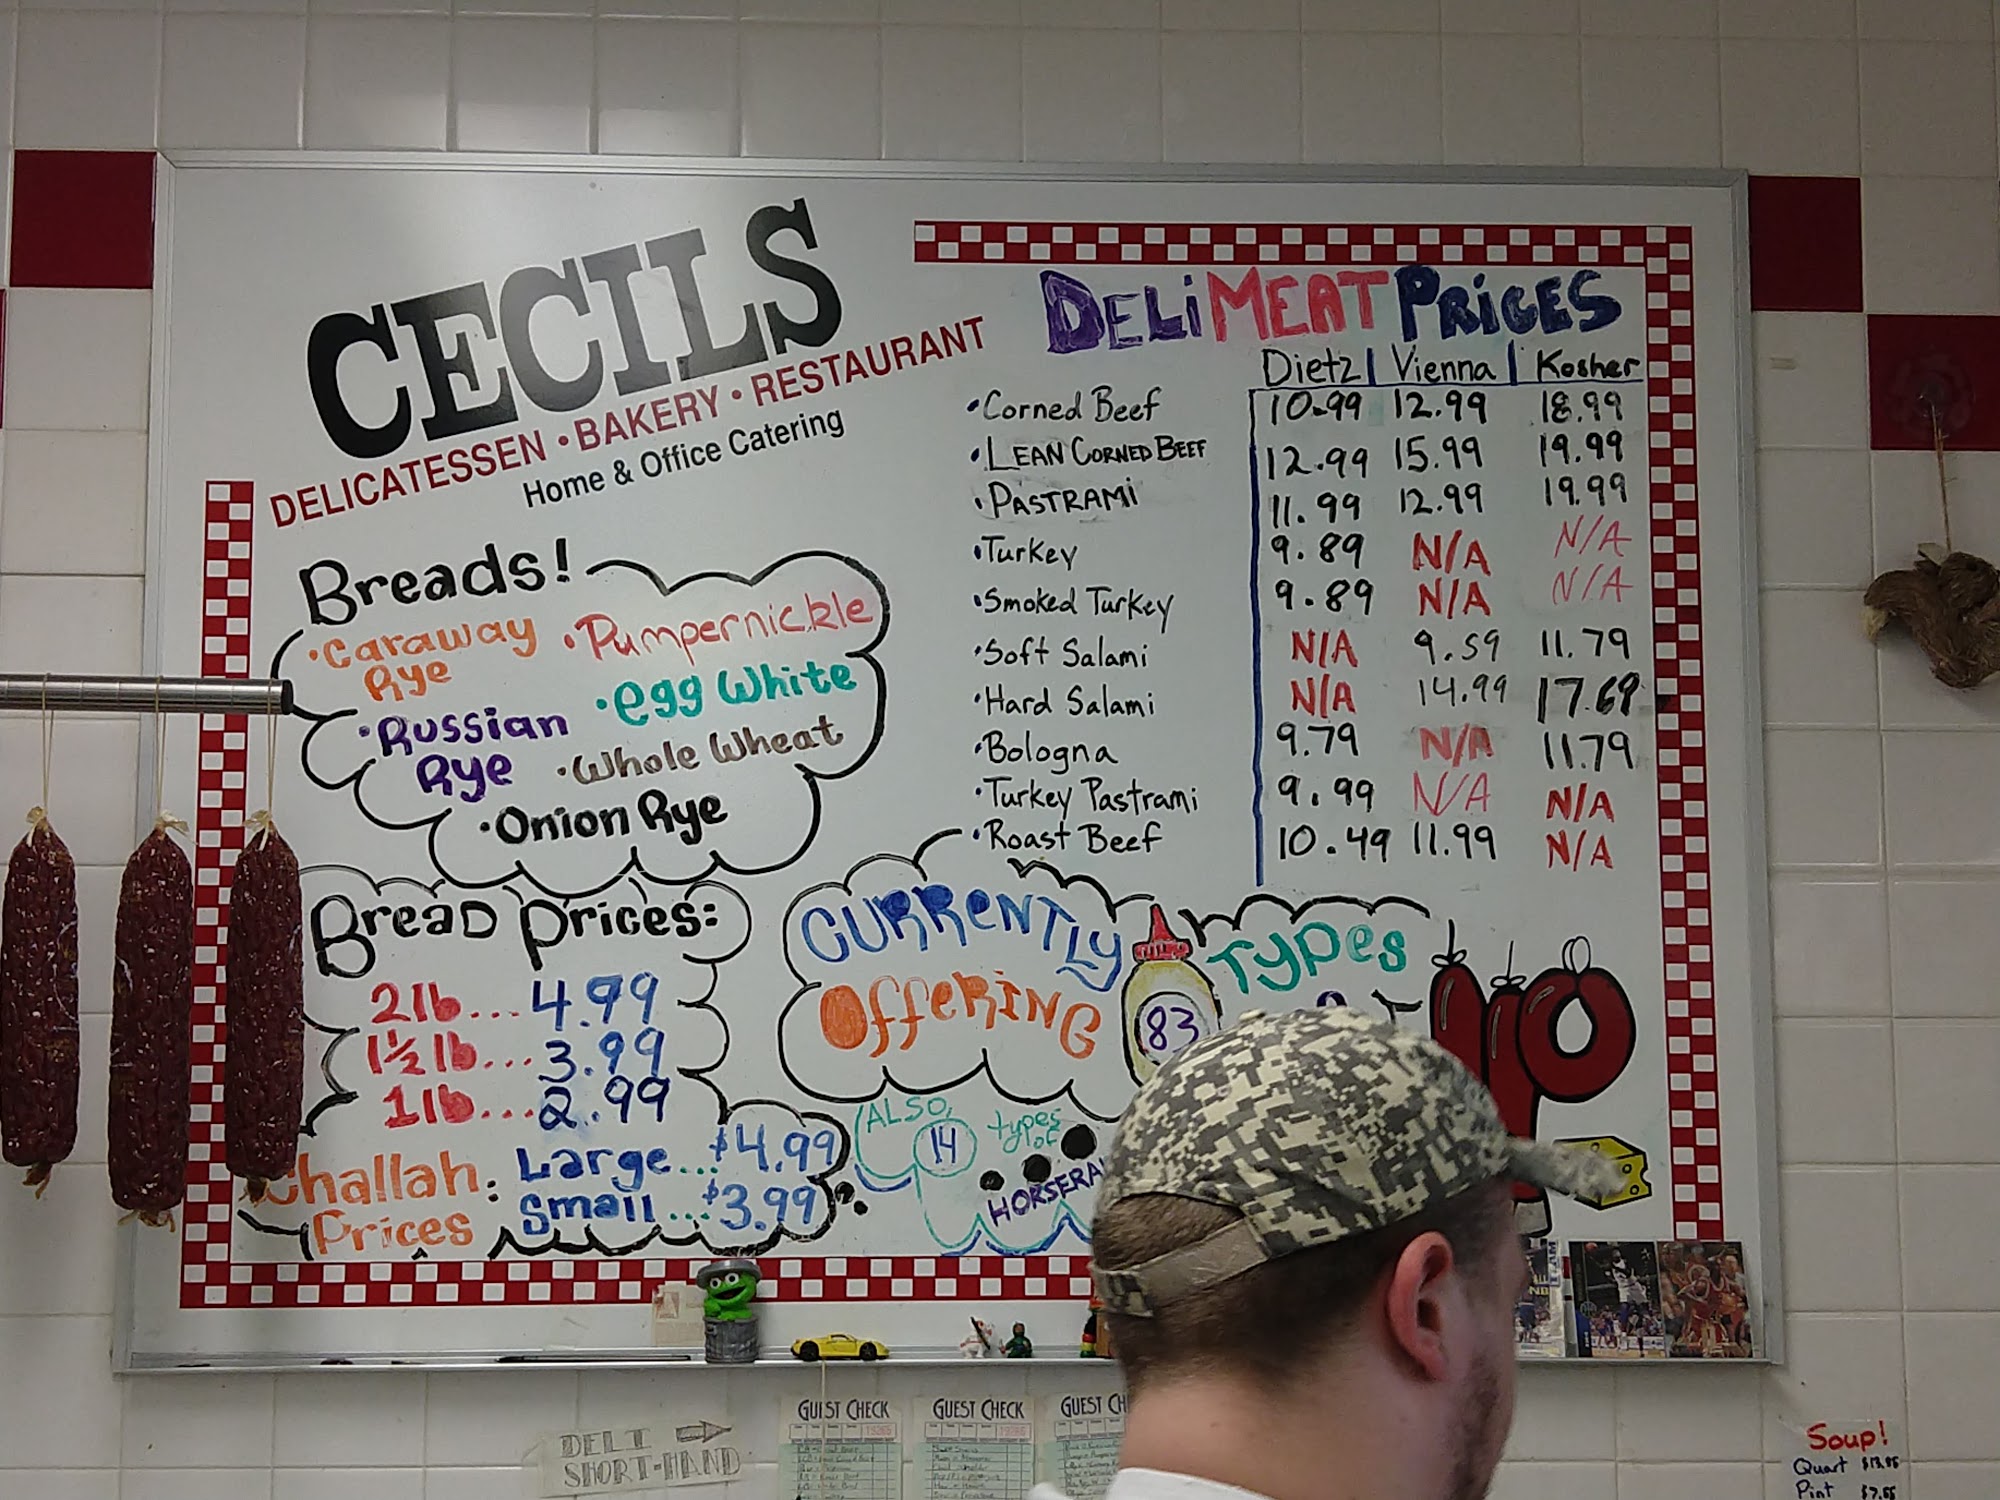 CECILS
DELICATESSEN • BAKERY • RESTAURANT
Home & Office Catering
Breads!
•Caraway Rye
•Pumpernickle
•Russian Rye
•egg White
•Whole Wheat
•Onion Rye
Bread Prices:
2lb... 4.99
1½ lb... 3.99
1lb... 2.99
Challah Prices:
Large... $4.99
Small... $3.99
DELI MEAT PRICES
Dietz | Vienna | Kosher
•Corned Beef 10.99 12.99 18.99
•LEAN CORNED BEEF 12.99 15.99 19.99
•PASTRAMi 11.99 12.99 19.99
•Turkey 9.89 N/A N/A
•Smoked Turkey 9.89 N/A N/A
•Soft Salami N/A 9.59 11.79
•Hard Salami N/A 14.99 17.69
•Bologna 9.79 N/A 11.79
•Turkey Pastrami 9.99 N/A N/A
•Roast Beef 10.49 11.99 N/A
CURRENTLY
OffeRiNG
83
Types
ALSO,
14
types
of
GUEST CHECK
GUEST CHECK
GUEST
DELI
SHORT-HAND
Soup!
Quart
Pint